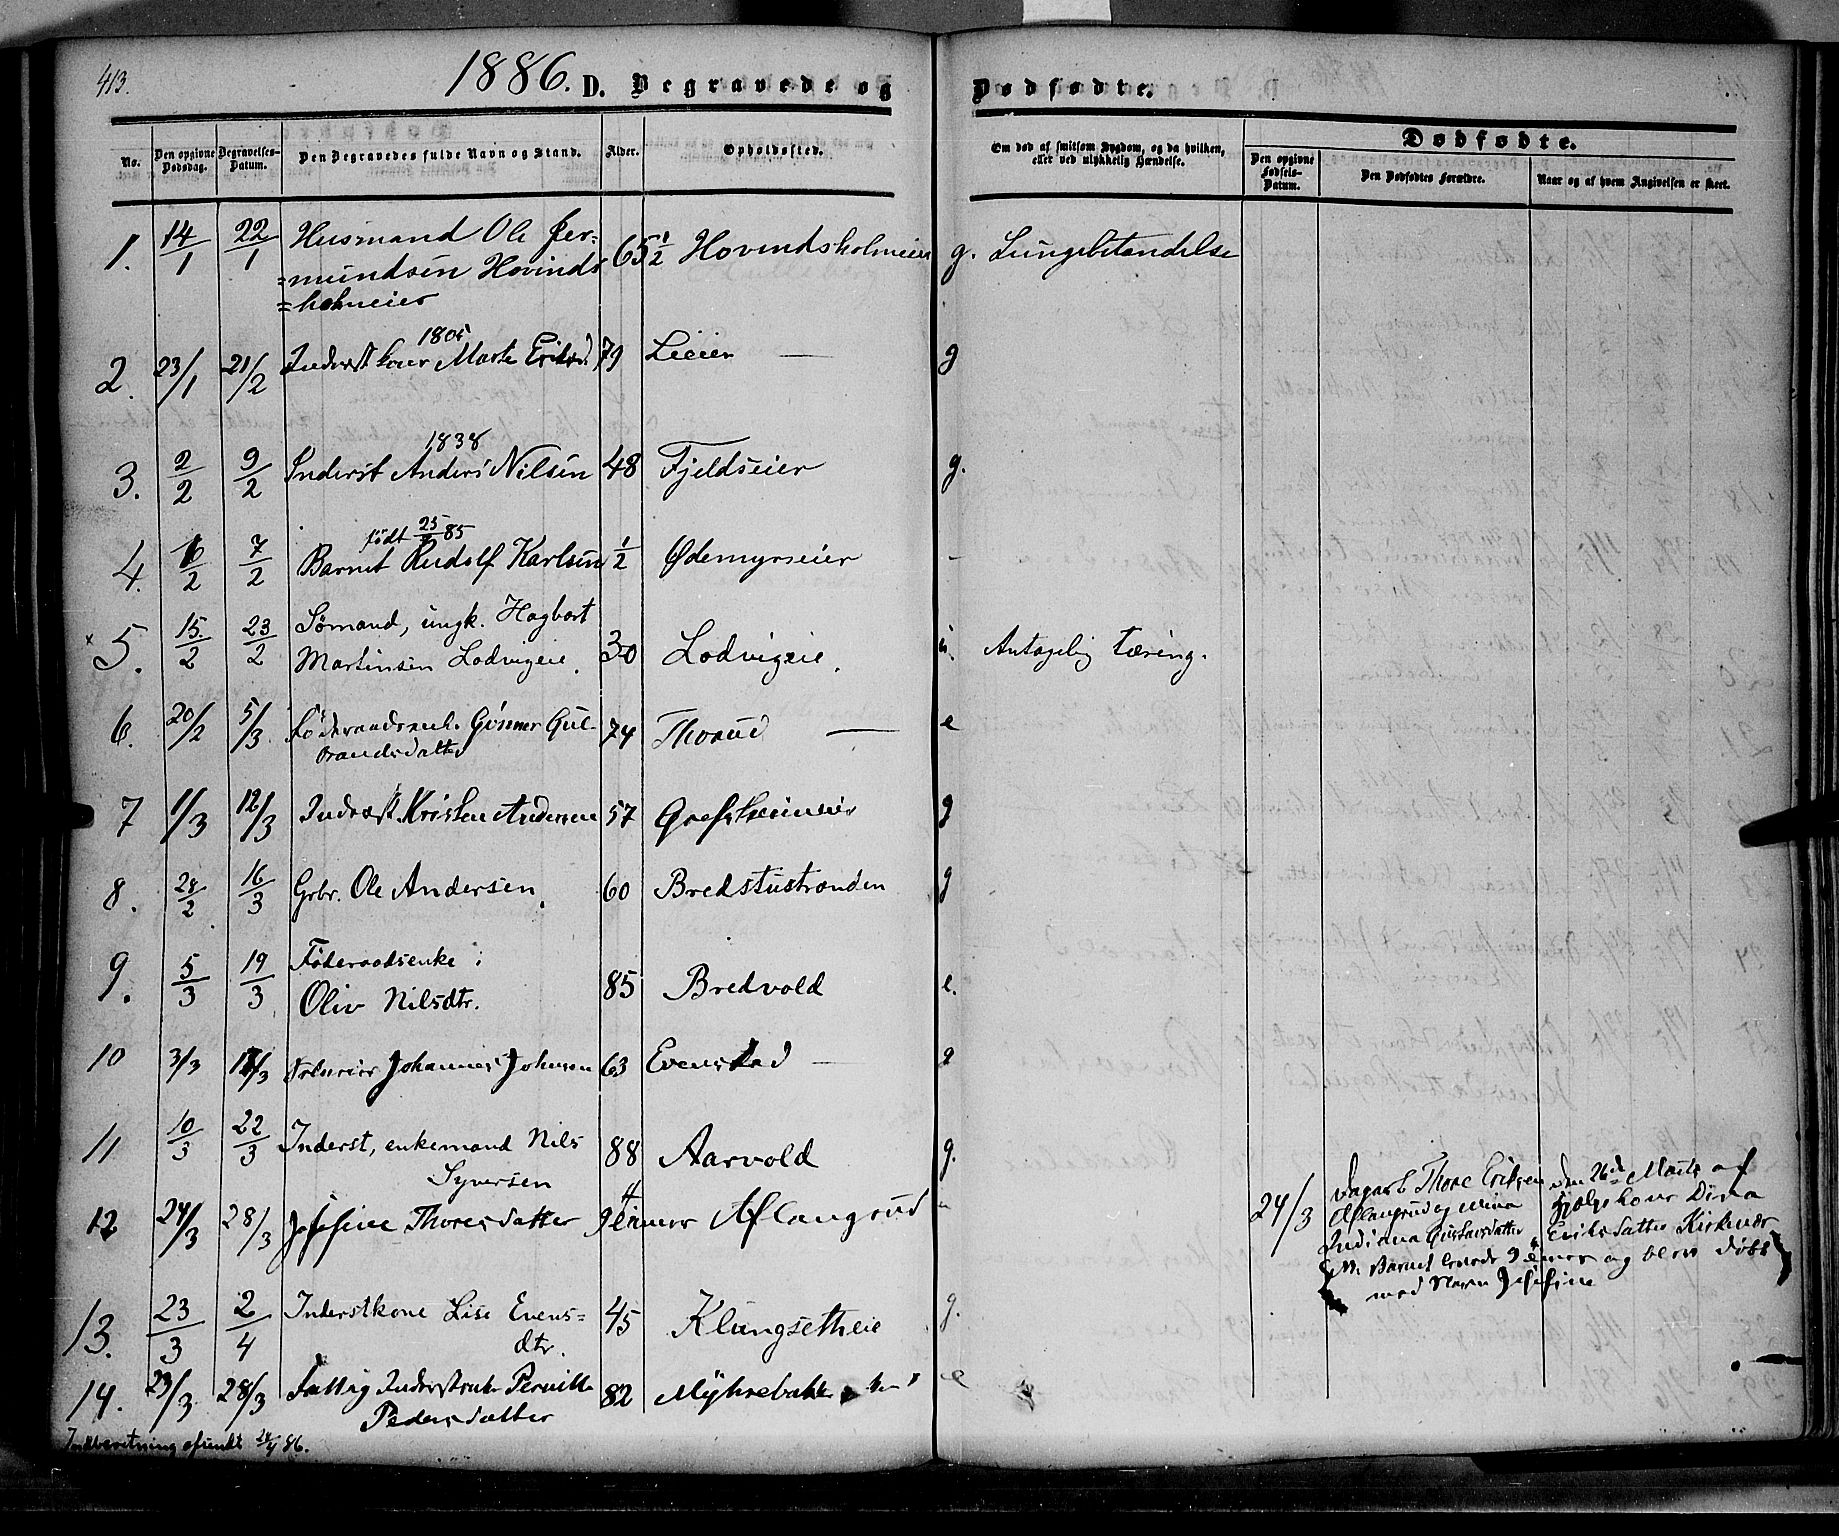 413.
1886. D. Begravede og
Dødfødte.
No.
Den opgivne Dødsdag.
Begravelses-Datum.
Den Begravedes fulde Navn og Stand.
Alder.
Opholdssted.
Om død af smitsom Sygdom, og da hvilken, eller ved ulykkelig Hændelse.
Dødfødte.
Den opgivne Fødsels-Datum.
Den Dødfødtes Forældre.
Naar og af hvem Angivelsen er skeet.
1. 14/1 22/1 Husmand Ole Jer= 65 1/2 Hovindsholmeier g. Lungebetændelse
=mundsen Hovinds
=holmeier
1805
2. 23/1 21/2 Inderstkone Marte Eriksd. 79 Lieier — g
1838
3. 2/2 9/2 Inderst Anders Nilsen 48 Fjeldseier g.
født 25/ 85
4. 6/2 7/2 Barnet Rudolf Karlsen 1/2 Ødemyrseier -
x 5. 15/2 23/2 Sømand, ungk. Hagbart
Martinsen Lodvigeie. 30 Lodvigeie. u. Antagelig tæring.
6. 20/2 5/3 Føderaadsenk. Gunner Gul- 74 Thorud — e
brandsdatter
7 1/3 12/3 Inderst Kristen Andersen 57 Grefsheimeier g
8. 28/2 16/3 Grbr. Ole Andersen. 60 Bredstustranden g
9. 5/3 19/3 Føderaadsenke
Oliv Nilsdtr. 85 Bredvold e.
10 3/3 /3 Selveier Johannes Johnsen 63 Evenstad — g
11 10/3 22/3 Inderst, enkemand Nils 88 Aarvold g.
Syversen
12 24/3 28/3 Josefine Thoresdatter 4 Timer Aflangrud "
24/3
Dagarb. Thore Eriksen
Aflangrud og
Indiana Gustavsdatter
Den 26de Marts af
Hjælpekone Dina
Eriksdatter Kirkenær
NB. Barnet levede Timer og blev døbt
med Navn Josefine
13. 23/3 2/4 Inderstkone Lise Evens= 45 Klungsetheie g.
dtr.
14. 23/3 28/3 Fattig Inderstenke Pernille 82 Myhrebakken e
Pedersdatter
Indberetning afsendt 86.